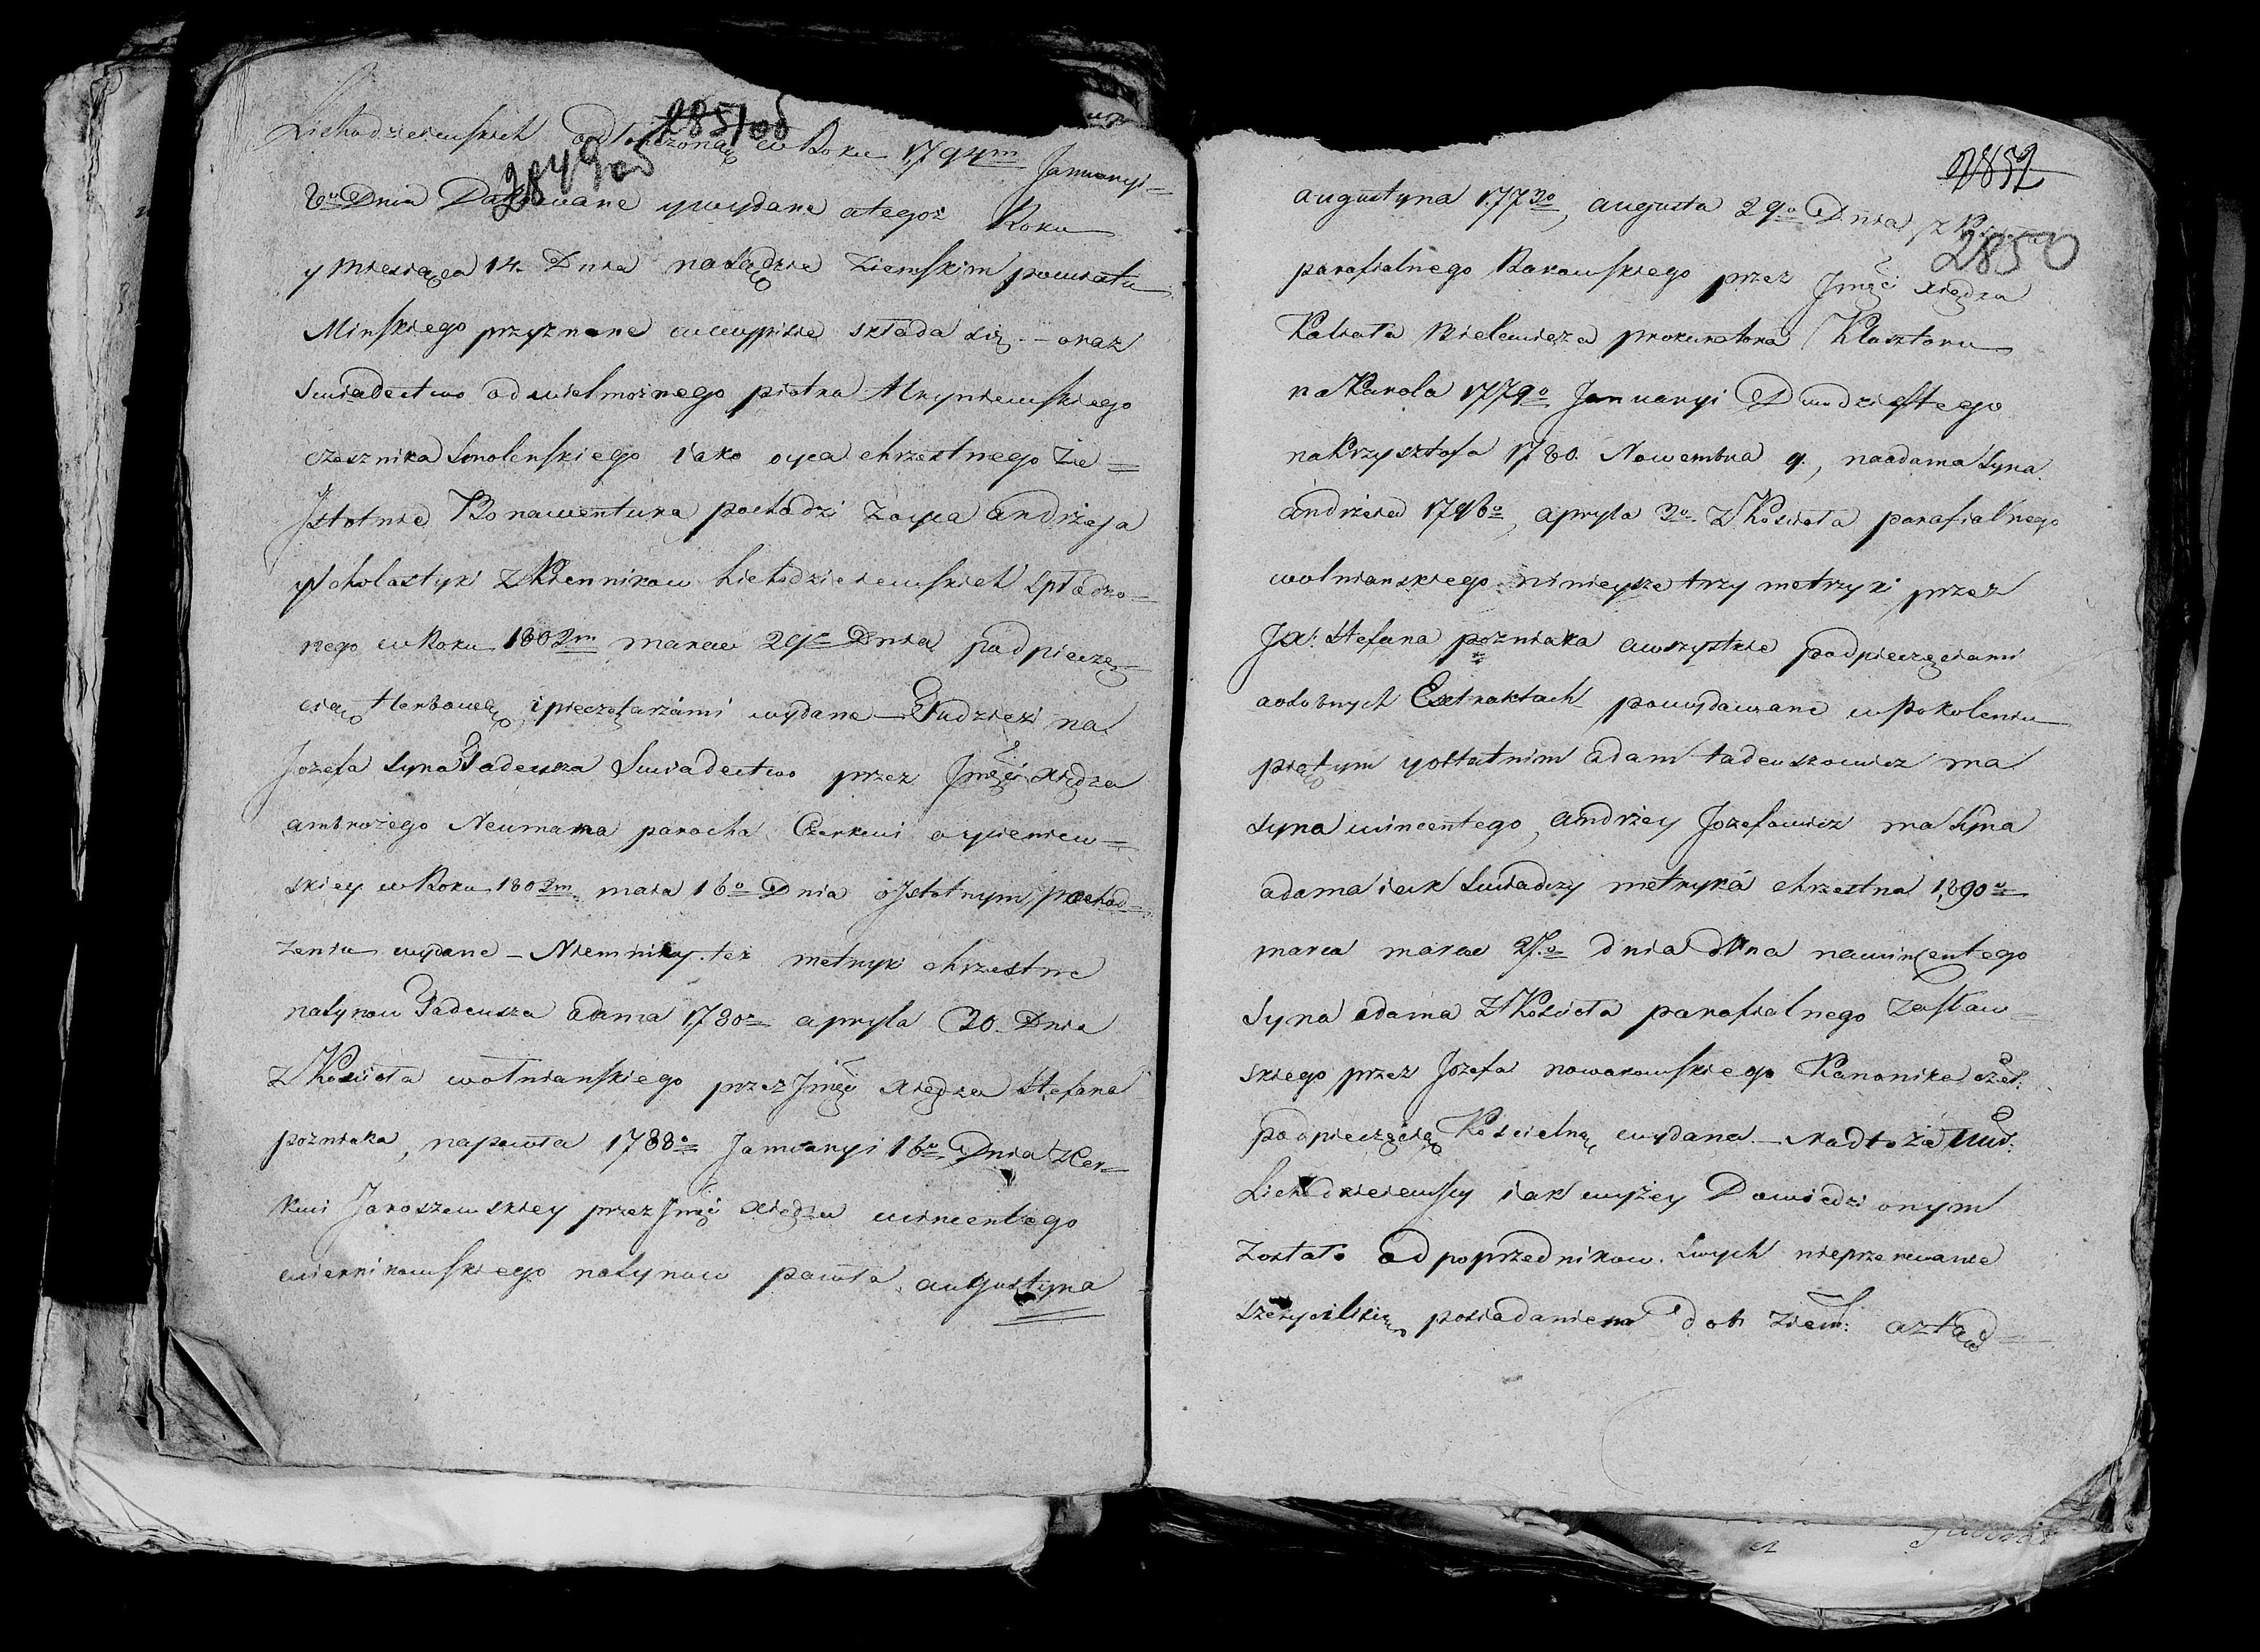 2851 об
2849 об
Lichodzieiewskich odłączoną w Roku 1794m Januaryi
8vo Dnia Datowane y wydane a tegoż Roku
y miesiąca 14. Dnia na Sądzie Ziemskim powiatu
Minskiego przyznane w wypisie składa się — oraz
Swiadectwo od wielmożnego piotra
czesznika Smolenskiego iako oyca chrzestnego że
Jstotnie Bonawentura pochodzi z oyca andrzeja
y Scholastyki z Kiennikow Lichodzieiewskich Spłodzo-
nego w Roku 1802m marca 29o Dnia pod pieczę-
cią Herbową i pieczętarzami wydane — Tudzież na
Jozefa syna Tadeusza Swiadectwo przez Jmści xiędza
ambrożego Neumana parocha Cerkwi
skiey w Roku 1802m maia 16o Dnia o Jstotnym pochod-
zeniu wydane — Niemniey też metryki chrzestne
na synow Tadeusza adama 1780o apryla 20. Dnia
z Kościoła wołnianskiego przez Jmści xiędza Stefana
pozniaka, na pawła 1788o Januaryi 16o Dnia z Cer-
kwi Jaroszewskiey przez Jmści xiędza wincentego
wiernikowskiego na synow pawła augustyna
2852
2850
augustyna 1773o, augusta 29o Dnia z
parafialnego Rakowskiego przez Jmści xiędza
Kalixta Bielewicza prokuratora Klasztoru
na Karola 1779o Januaryi Dwudziestego
na Krzysztofa 1780. Nowembra 9., na adama Syna
andrzeia 1796o, apryla 3o z Kościoła parafialnego
wołnianskiego ninieysze trzy metryki przez
Jx: Stefana pozniaka a wszystkie pod pieczęciami
a osobnych Extraktach powydawane w pokoleniu
piątym y ostatnim adam tadeuszowicz ma
syna wincentego, andrzey Jozefowicz ma Syna
adama iak Swiadczy metryka chrzestna 1,890o
marca marca 27.o dnia dana na wincentego
Syna adama z Kościoła parafialnego Zasław-
skiego przez Jozefa nowakowskiego Kanonika
pod pieczęcią Kościelną wydana. — Nadto że Uur:
Lichodzieiewscy iak wyżey Dowiedzionym
zostało od poprzednikow Swych nieprzerwanie
szczycili się posiadaniem dob Ziem: a ztąd